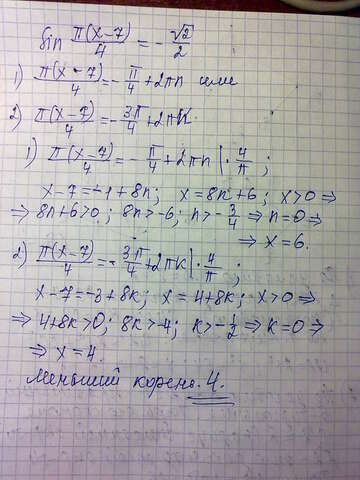 sin π(x-7)/4 = - √2/2
1) π(x-7)/4 = - π/4 + 2πn или
2) π(x-7)/4 = - 3π/4 + 2πk
1) π(x-7)/4 = - π/4 + 2πn | · 4/π ;
x-7 = -1 + 8n; x = 8n + 6; x>0 ⇒
⇒ 8n+6>0; 8n > -6; n > - 3/4 ⇒ n=0 ⇒
⇒ x = 6.
2) π(x-7)/4 = - 3π/4 + 2πk | · 4/π ;
x-7 = -3 + 8k; x = 4+8k; x>0 ⇒
⇒ 4+8k>0; 8k > -4; k > - 1/2 ⇒ k=0 ⇒
⇒ x = 4.
Меньший корень. 4.